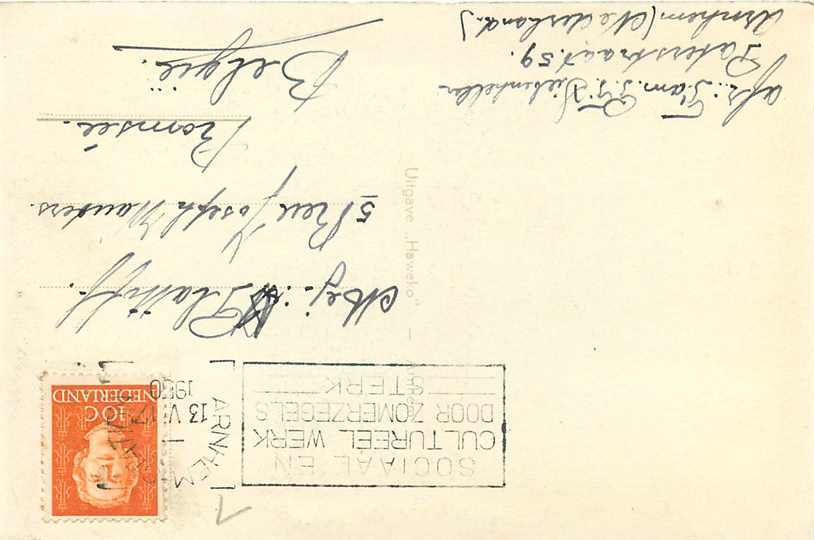 SOCIAAL EN
CULTUREEL WERK
DOOR ZOMERZEGELS
STERK
ARNHEM
13 VI 17
1950
10 C
NEDERLAND
Mej: Plattoff.
5 Reu Joseph Wauters.
Romsée.
België.
Uitgave „Haweko" – Arnhem
afz: Fam. P.F. Siebenheller
Paterstraat. 59.
Arnhem (Nederland.)